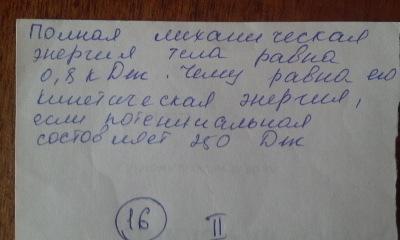 Полная механическая
энергия тела равна
0,8 кДж. Чему равна его
кинетическая энергия,
если потенциальная
составляет 250 Дж
16 II